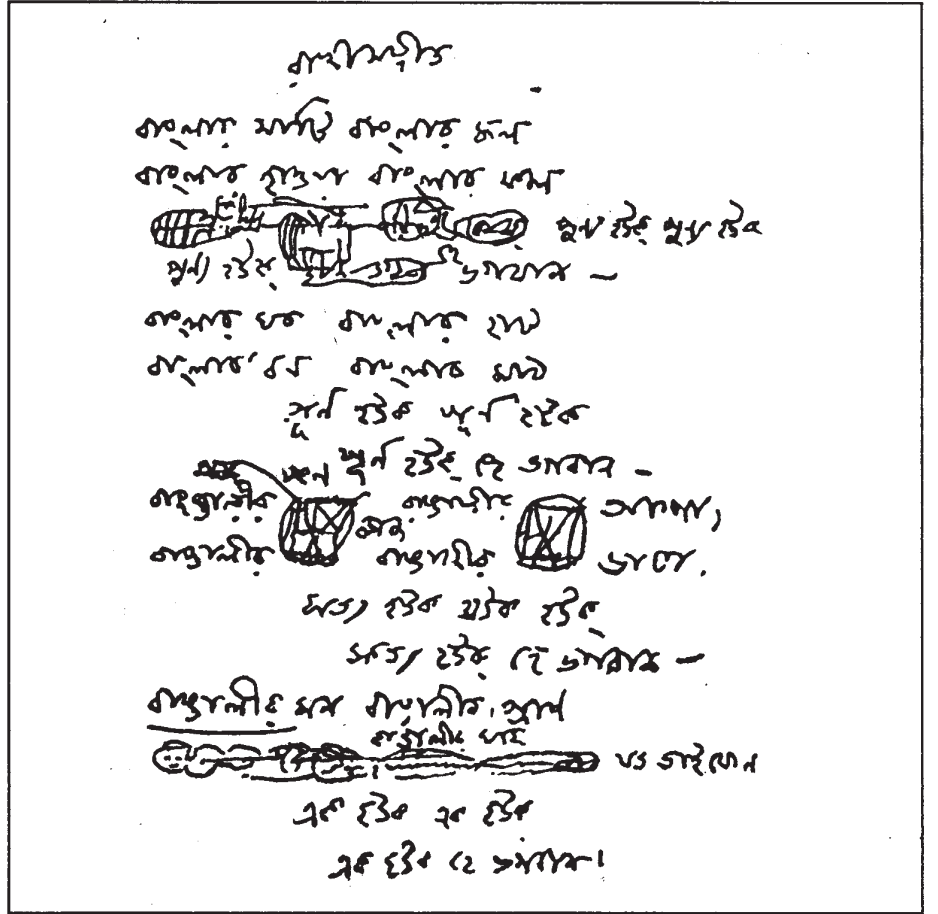 রাখীসঙ্গীত
বাংলার মাটি বাংলার জল
বাংলার হাওয়া বাংলার ফল
পুণ্য হউক্ পুণ্য হউক
পুণ্য হউক্ ভগবান —
বাংলার ঘর বাংলার হাট
বাংলার বন বাংলার মাঠ
পূর্ণ হউক পূর্ণ হউক
পূর্ণ হউক্ হে ভগবান —
বাঙ্গালীর বাঙ্গালীর আশা,
বাঙ্গালীর বাঙ্গালীর ভাষা.
সত্য হউক সত্য হউক্
সত্য হউক্ হে ভগবান —
বাঙ্গালীর মন বাঙ্গালীর প্রাণ
বাঙ্গালীর ঘরে
যত ভাইবোন
এক হউক এক হউক
এক হউক হে ভগবান।